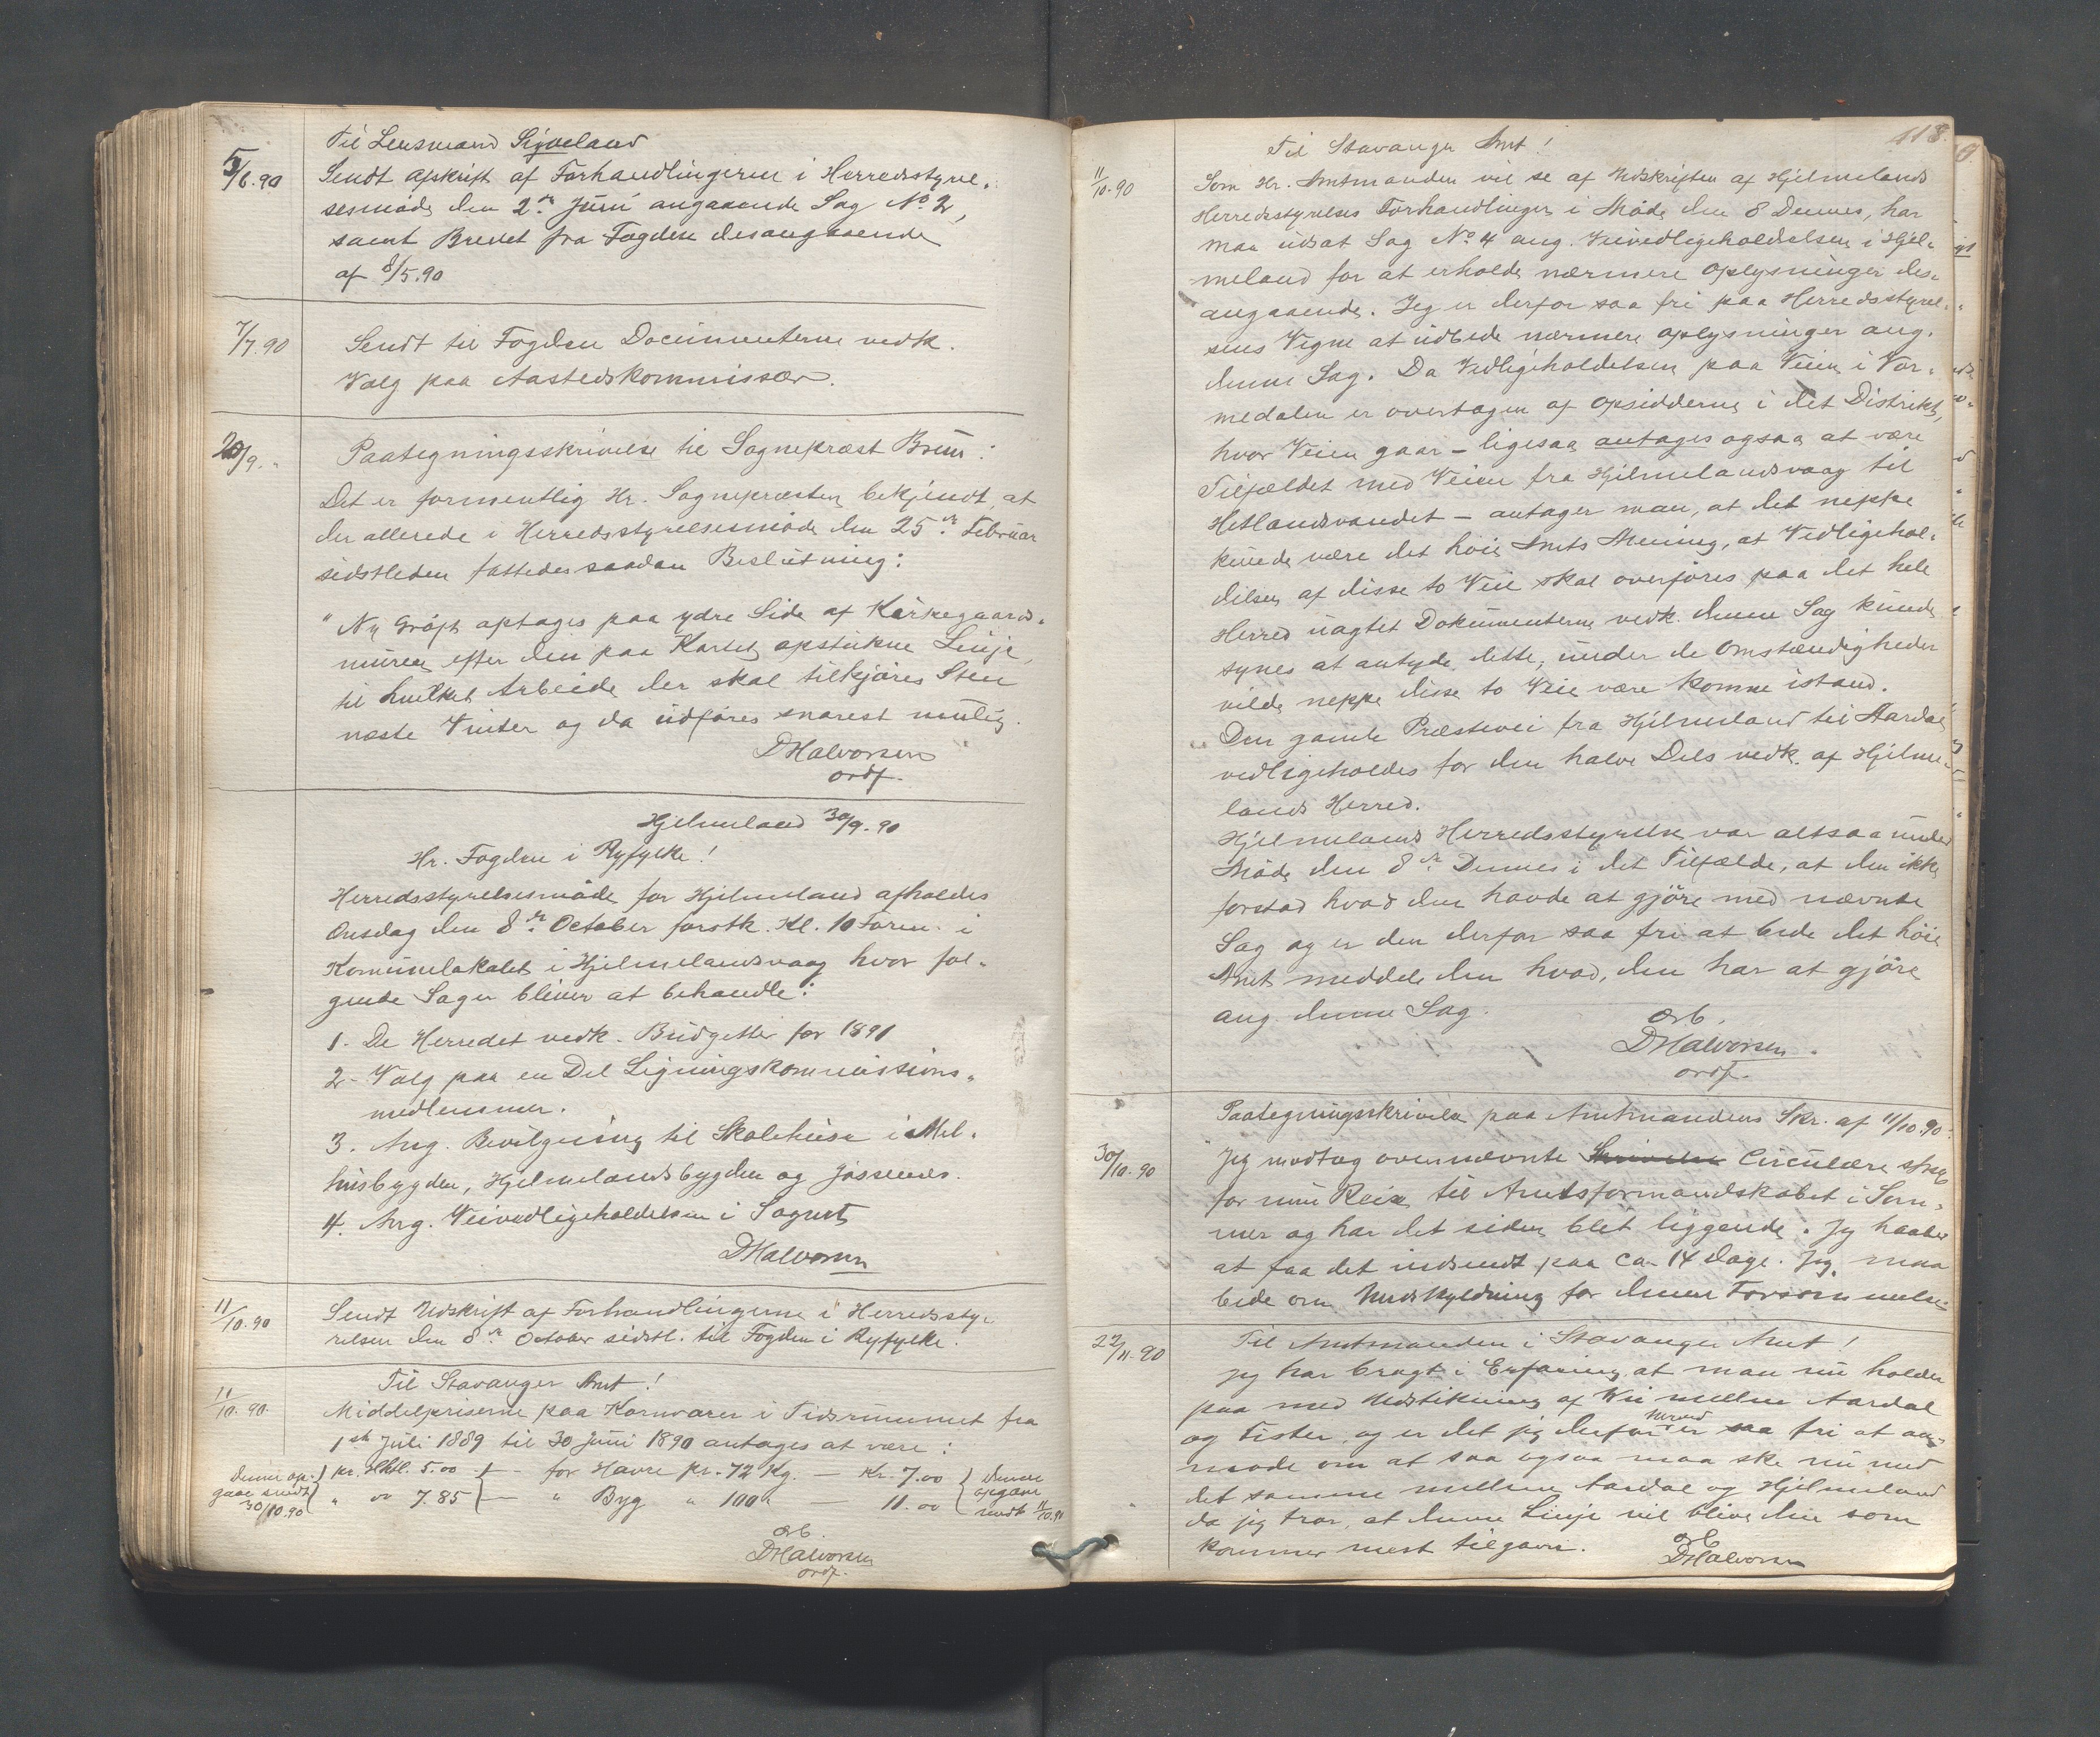 Til Lensmand Sigveland
5/6.90 Sendt Afskrift af Forhandlingerne i Herredsstyrel-
sesmøde den 2den Juni angaaende Sag No 2,
samt Brevet fra Fogden desangaaende
af 8/5.90
7/7.90 Sendt til Fogden Documenterne vedk.
Valg paa Aastedskommissær.
20/9. " Paategningsskrivelse til Sognepræst Bruun:
Det er formentlig Hr. Sognepræsten bekjendt, at
der allerede i Herredsstyrelsesmøde den 25de Februar
sidstleden fattedes saadan Beslutning:
"Ny Grøft optages paa ydre Side af Kirkegaards-
muren efter den paa Kartet opstukne Linje,
til hvilket Arbeide der skal tilkjøres Sten
næste Vinter og da udføres snarest mulig.
DHalvorsen
ordf.
Hjelmeland 30/9.90
Hr. Fogden i Ryfylke!
Herredsstyrelsesmøde for Hjelmeland afholdes
Onsdag den 8de October førstk. Kl. 10 Form. i
Komunelokalet i Hjelmelandsvaag hvor føl-
gende Sager bliver at behandle:
1. De Herredet vedk. Budgetter for 1891
2. Valg paa en Del Ligningskommissions-
medlemmer.
3. Ang. Bevilgning til Skolehuse i Mel-
husbygden, Hjelmelandsbygden og Jøssenes.
4. Ang. Veivedligeholdelsen i Sognet
DHalvorsen
11/10.90 Sendt Udskrift af Forhandlingerne i Herredssty-
relsen den 8de October sidstl. til Fogden i Ryfylke.
Til Stavanger Amt!
11/10.90. Middelpriserne paa Kornvarer i Tidsrummet fra
1ste Juli 1889 til 30 Juni 1890 antages at være:
Denne op- } pr. Hktl. 5.00 } — for Havre pr. 72 Kg. — Kr. 7.00 { denne
gave sendt } " oo 7.85 } — " Byg " 100 " — 11.00 { opgave
30/10.90 sendt 11/10.90
Ærb.
DHalvorsen
ordf.
118.
Til Stavanger Amt!
11/10.90 Som Hr. Amtmanden vil se af Udskriften af Hjelmelands
Herredsstyrelses Forhandlinger i Møde den 8 Dennes, har
man udsat Sag No 4 ang. Veivedligeholdelsen i Hjel-
meland for at erholde nærmere Oplysninger des-
angaaende. Jeg er derfor saa fri paa Herredsstyrel-
sens Vegne at udbede nærmere Oplysninger ang.
denne Sag. Da Vedligeholdelsen paa Veien i Vor-
medalen er overtagen af Opsidderne i det Distrikt,
hvor Veien gaar – ligesaa antages ogsaa at være
Tilfældet med Veien fra Hjelmelandsvaag til
Hetlandsvandet – antager man, at det neppe
kunde være det høie Amts Mening, at Vedligehol-
delsen af disse to Veie skal overføres paa det hele
Herred uagtet Dokumenterne vedk. denne Sag kunde
synes at antyde dette, under de Omstændigheder
vilde neppe disse to Veie være komne istand.
Den gamle Præstevei fra Hjelmeland til Aardal
vedligeholdes for den halve Dels vedk. af Hjelme-
lands Herred.
Hjelmelands Herredsstyrelse var altsaa under
Møde den 8de Dennes i det Tilfælde, at den ikke
forstod hvad den havde at gjøre med nævnte
Sag og er den derfor saa fri at bede det høie
Amt meddele den hvad, den har at gjøre
ang. denne Sag.
Ærb.
DHalvorsen.
ordf.
Paategningsskrivelse paa Amtmandens Skr. af 11/10.90.
30/10.90 Jeg modtog ovennævnte Skrivelse Circulære strax
før min Reise til Amtsformandskabet i Som-
mer og har det siden blet liggende. Jeg haaber
at faa det indsendt paa ca. 14 Dage. Jeg maa
bede om Undskyldning for denne Forsømmelse
22/11.90 Til Amtmanden i Stavanger Amt!
Jeg har bragt i Erfaring, at man nu holder
paa med Udstikning af Vei mellem Aardal
og Fister, og er det jeg derfor er saa fri at an-
mode om at saa ogsaa maa ske nu med
det samme mellem Aardal og Hjelmeland
da jeg tror, at denne Linje vil blive den som
kommer mest tilgavn.
Ærb
DHalvorsen